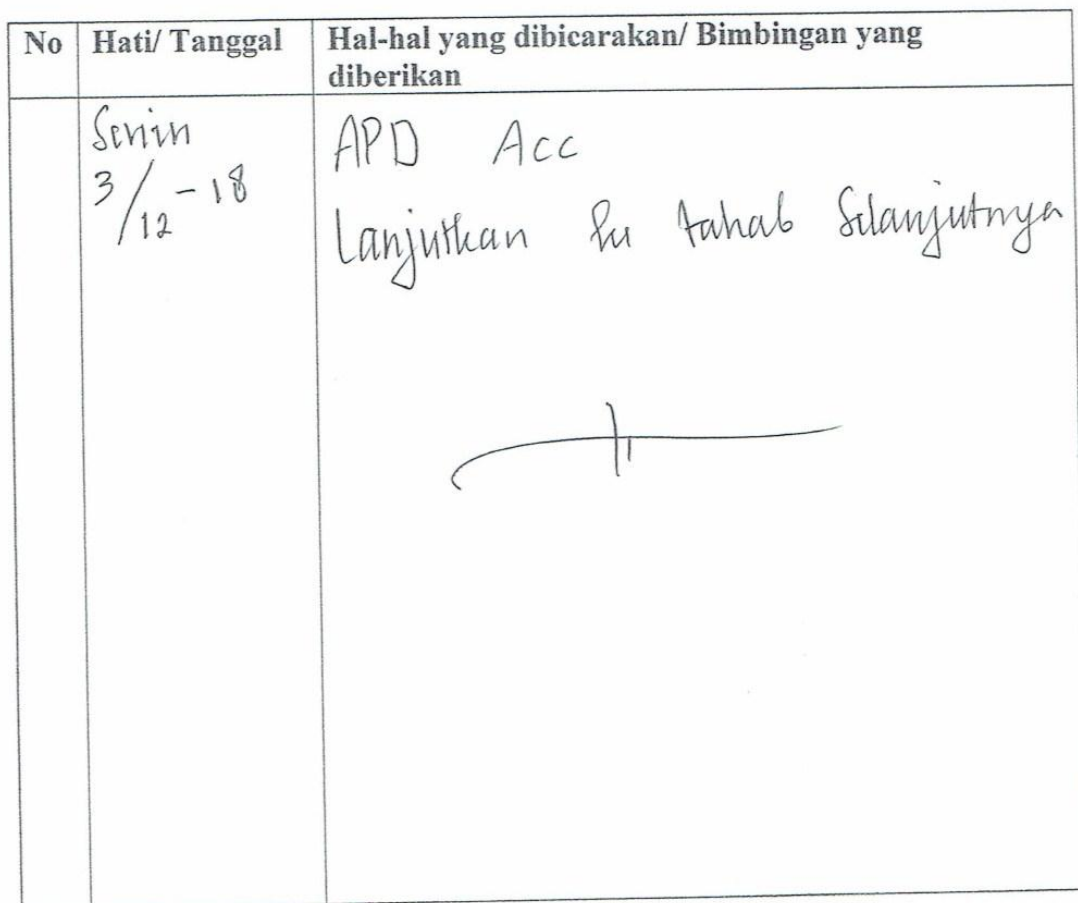 No Hati/ Tanggal Hal-hal yang dibicarakan/ Bimbingan yang
diberikan
Senin
3/12 - 18
APD Acc
Lanjutkan ke tahab Selanjutnya